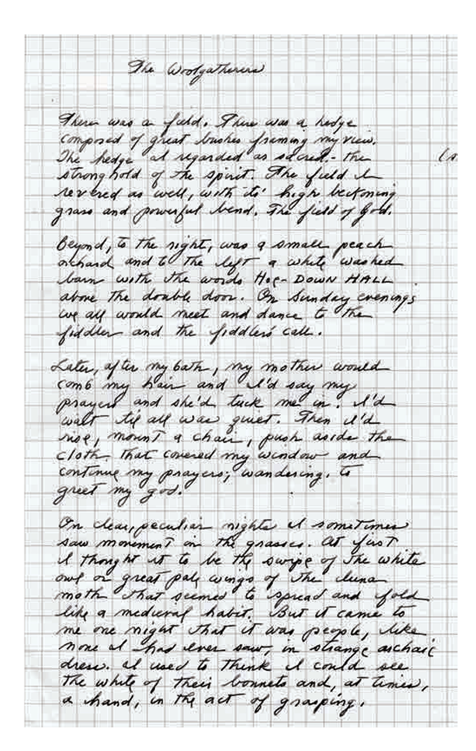 The Woolgatherers
There was a field. There was a hedge
composed of great bushes framing my view.
The hedge I regarded as sacred - the
stronghold of the spirit. The field I
revered as well, with its' high beckoning
grass and powerful bend. The field of God.
Beyond, to the right, was a small peach
orchard and to the left a white washed
barn with the words HOE-DOWN HALL
above the double door. On Sunday evenings
we all would meet and dance to the
fiddler and the fiddlers' call.
Later, after my bath, my mother would
comb my hair and I'd say my
prayers and she'd tuck me in. I'd
wait til all was quiet. Then I'd
rise, mount a chair, push aside the
cloth that covered my window and
continue my prayers; wandering, to
greet my god.
On clear, peculiar nights I sometimes
saw movement in the grasses. At first
I thought it to be the swipe of the white
owl or great pale wings of the luna
moth that seemed to spread and fold
like a medieval habit. But it came to
me one night that it was people, like
none I had ever saw, in strange archaic
dress. I used to think I could see
the white of their bonnets and, at times,
a hand, in the act of grasping.